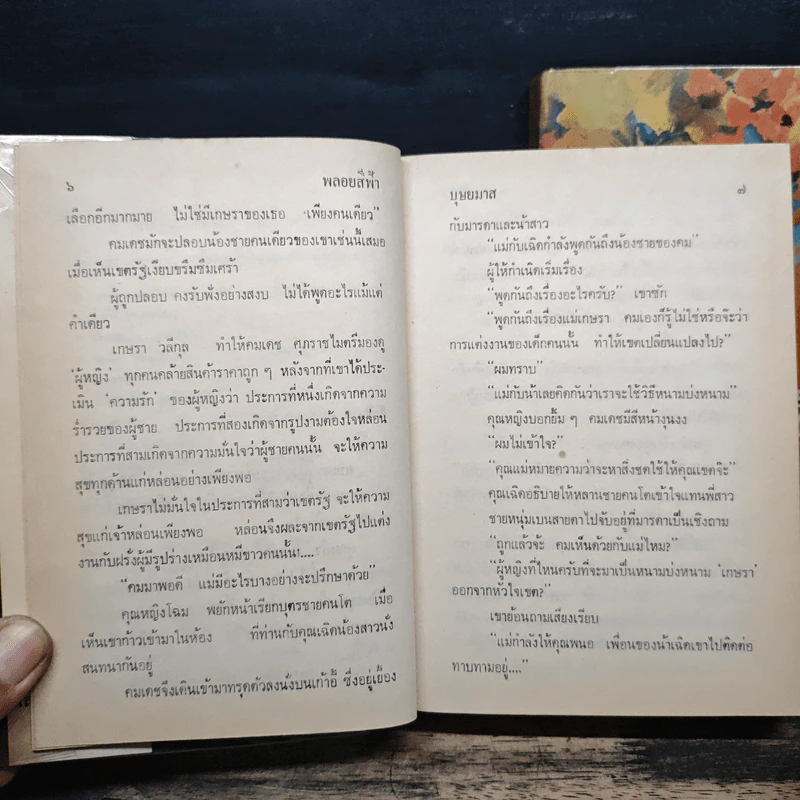 ๖ พลอยสีฟ้า
เลือกอีกมากมาย ไม่ใช่มีเกษราของเธอ เพียงคนเดียว”
คมเดชมักจะปลอบน้องชายคนเดียวของเขาเช่นนี้เสมอ
เมื่อเห็นเขตรัฐเงียบขรึมซึมเศร้า
ผู้ถูกปลอบ คงรับฟังอย่างสงบ ไม่ได้พูดอะไรแม้แต่
คำเดียว
เกษรา วลีกุล ทำให้คมเดช ศุภราชไมตรีมองดู
‘ผู้หญิง’ ทุกคนคล้ายสินค้าราคาถูก ๆ หลังจากที่เขาได้ประ-
เมิน ‘ความรัก’ ของผู้หญิงว่า ประการที่หนึ่งเกิดจากความ
ร่ำรวยของผู้ชาย ประการที่สองเกิดจากรูปงามต้องใจหล่อน
ประการที่สามเกิดจากความมั่นใจว่าผู้ชายคนนั้น จะให้ความ
สุขทุกด้านแก่หล่อนอย่างเพียงพอ
เกษราไม่มั่นใจในประการที่สามว่าเขตรัฐ จะให้ความ
สุขแก่เจ้าหล่อนเพียงพอ หล่อนจึงผละจากเขตรัฐไปแต่ง
งานกับฝรั่งผู้มีรูปร่างเหมือนหมีขาวคนนั้น!....
“คมมาพอดี แม่มีอะไรบางอย่างจะปรึกษาด้วย”
คุณหญิงโฉม พยักหน้าเรียกบุตรชายคนโต เมื่อ
เห็นเขาก้าวเข้ามาในห้อง ที่ท่านกับคุณเฉิดน้องสาวนั่ง
สนทนากันอยู่
คมเดชจึงเดินเข้ามาทรุดตัวลงนั่งบนเก้าอี้ ซึ่งอยู่เยื้อง
บุษยมาส ๗
กับมารดาและน้าสาว
“แม่กับเฉิดกำลังพูดกันถึงน้องชายของคม”
ผู้ให้กำเนิดเริ่มเรื่อง
“พูดกันถึงเรื่องอะไรครับ?” เขาซัก
“พูดกันถึงเรื่องแม่เกษรา คมเองก็รู้ไม่ใช่หรือจ๊ะว่า
การแต่งงานของเด็กคนนั้น ทำให้เขตเปลี่ยนแปลงไป?”
“ผมทราบ”
“แม่กับน้าเลยคิดกันว่าเราจะใช้วิธีหนามบ่งหนาม”
คุณหญิงบอกยิ้ม ๆ คมเดชมีสีหน้างุนงง
“ผมไม่เข้าใจ?”
“คุณแม่หมายความว่าจะหาสิ่งชดใช้ให้คุณเขตจ๊ะ”
คุณเฉิดอธิบายให้หลานชายคนโตเข้าใจแทนพี่สาว
ชายหนุ่มเบนสายตาไปจับอยู่ที่มารดาเป็นเชิงถาม
“ถูกแล้วจ้ะ คมเห็นด้วยกับแม่ไหม?”
“ผู้หญิงที่ไหนครับที่จะมาเป็นหนามบ่งหนาม ‘เกษรา’
ออกจากหัวใจเขต?”
เขาย้อนถามเสียงเรียบ
“แม่กำลังให้คุณพนอ เพื่อนของน้าเฉิดเขาไปติดต่อ
ทาบทามอยู่....”